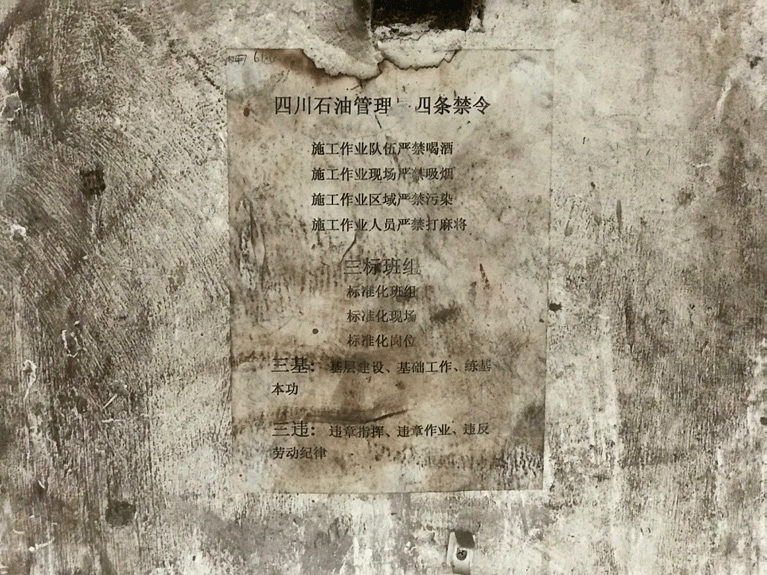 四川石油管理 四条禁令
施工作业队伍严禁喝酒
施工作业现场严禁吸烟
施工作业区域严禁污染
施工作业人员严禁打麻将
三标班组
标准化班组
标准化现场
标准化岗位
三基：基层建设、基础工作、练基
本功
三违：违章指挥、违章作业、违反
劳动纪律